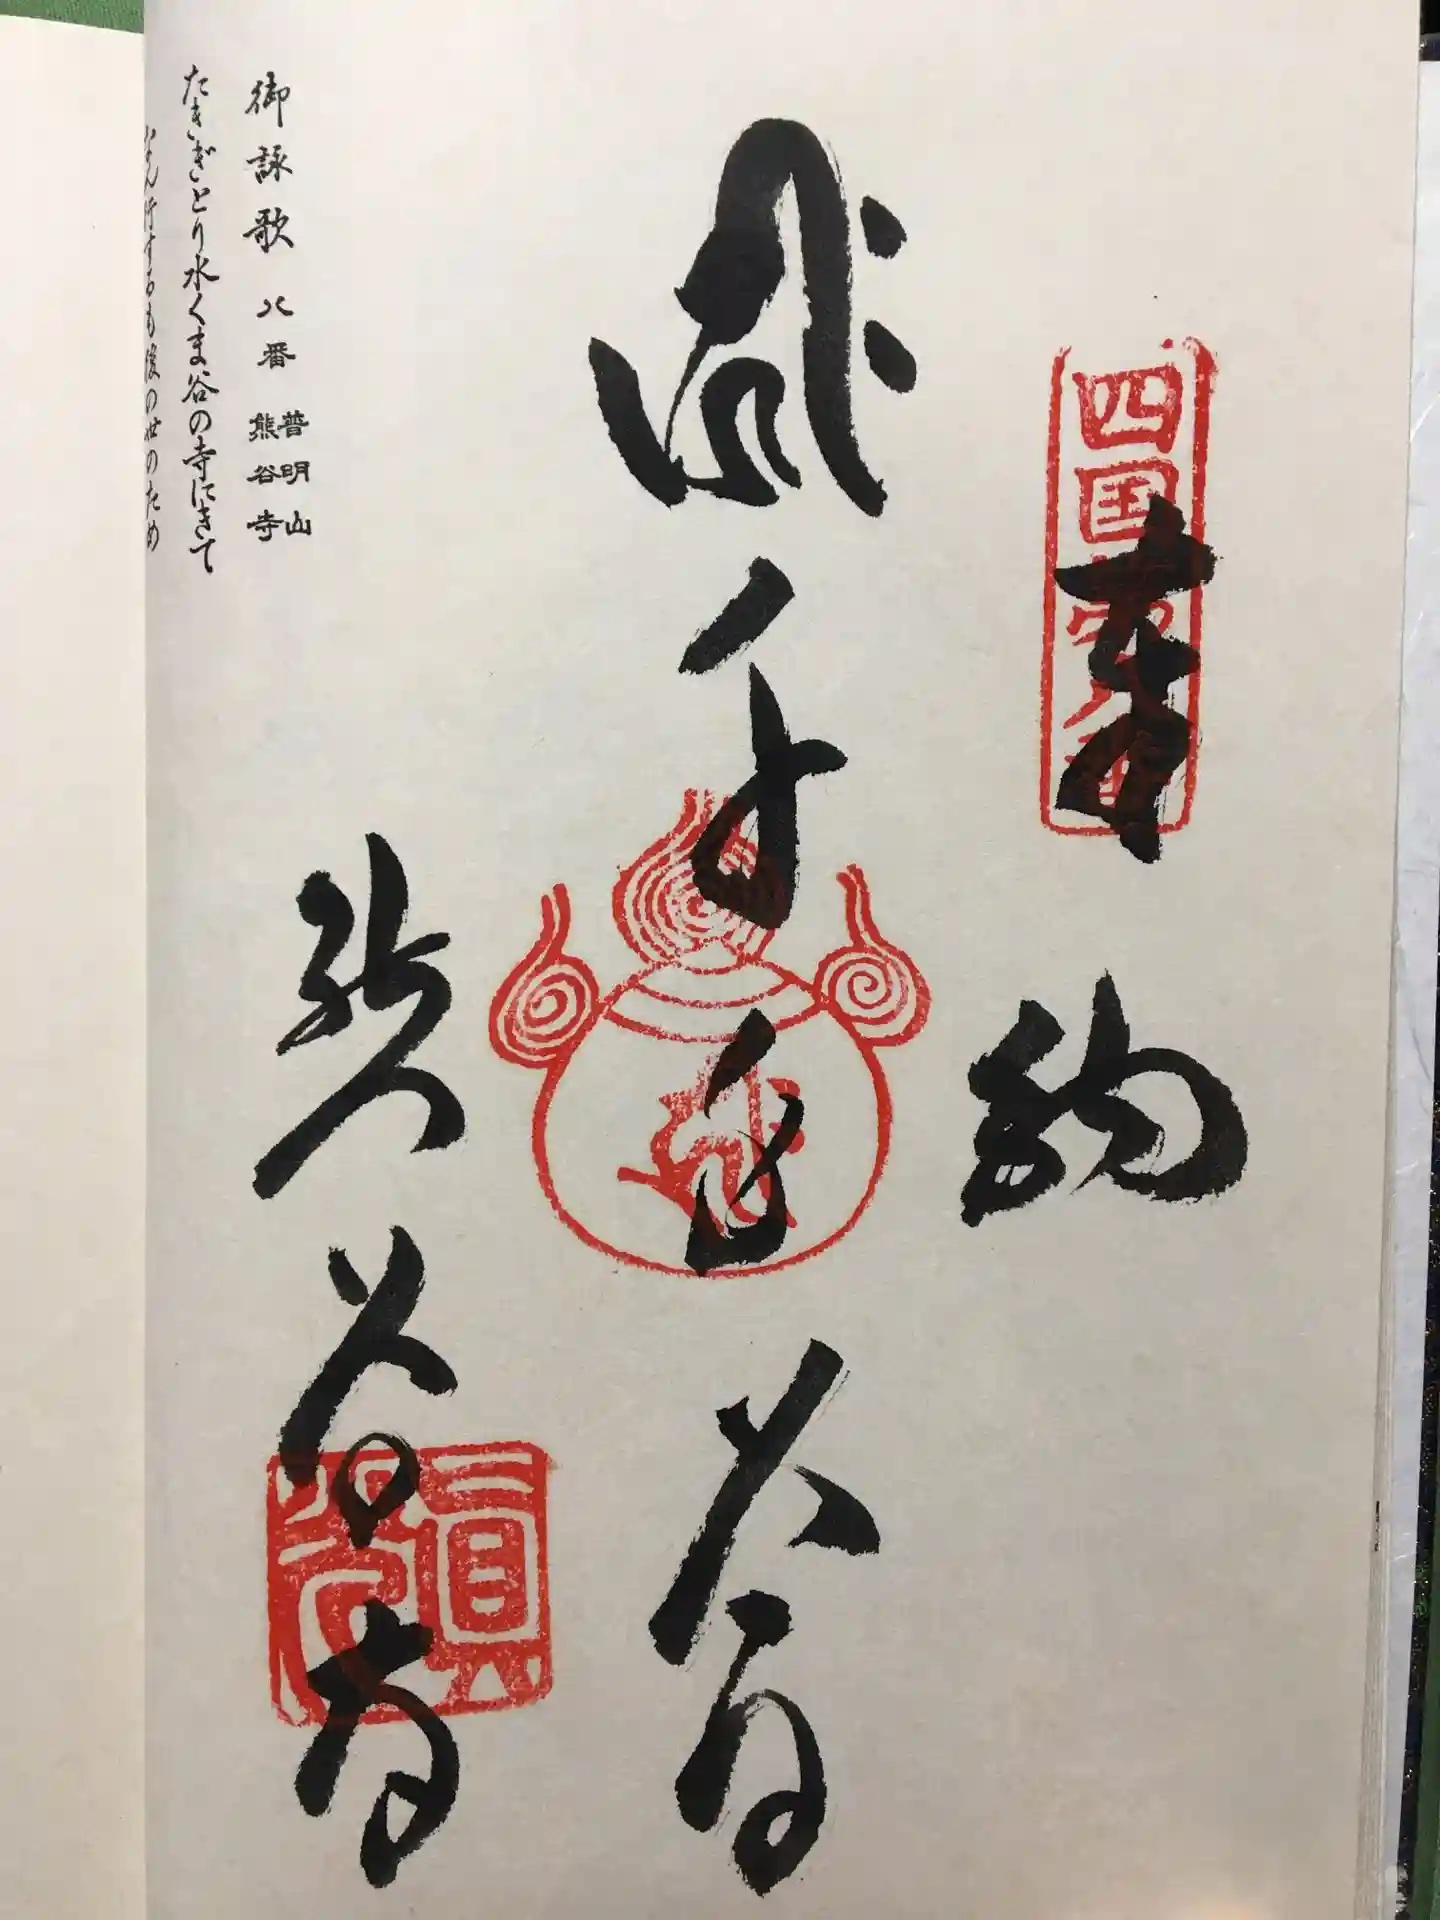 四国第八番
奉納
千手大悲
熊谷寺
御詠歌 八番 普明山
熊谷寺
たきぎとり水くま谷の寺にきて
なん行するも後の世のため